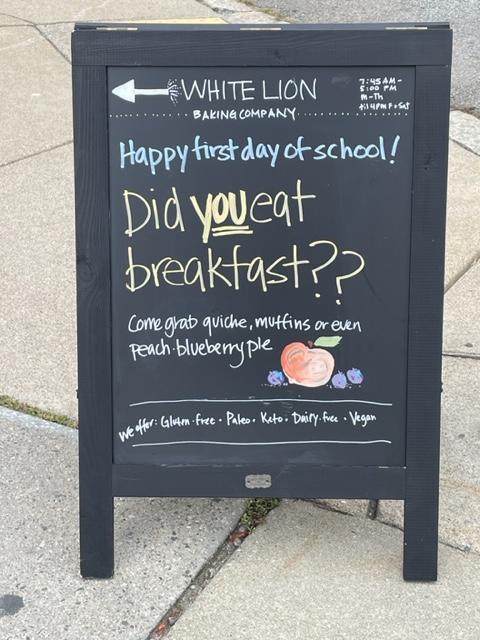 WHITE LION
BAKING COMPANY
7:45 AM-
5:00 PM
M-Th
til 4PM F+Sat
Happy first day of school!
Did you eat
breakfast??
Come grab quiche, muffins or even
peach-blueberry pie
We offer: Gluten-free • Paleo • Keto • Dairy-free • Vegan